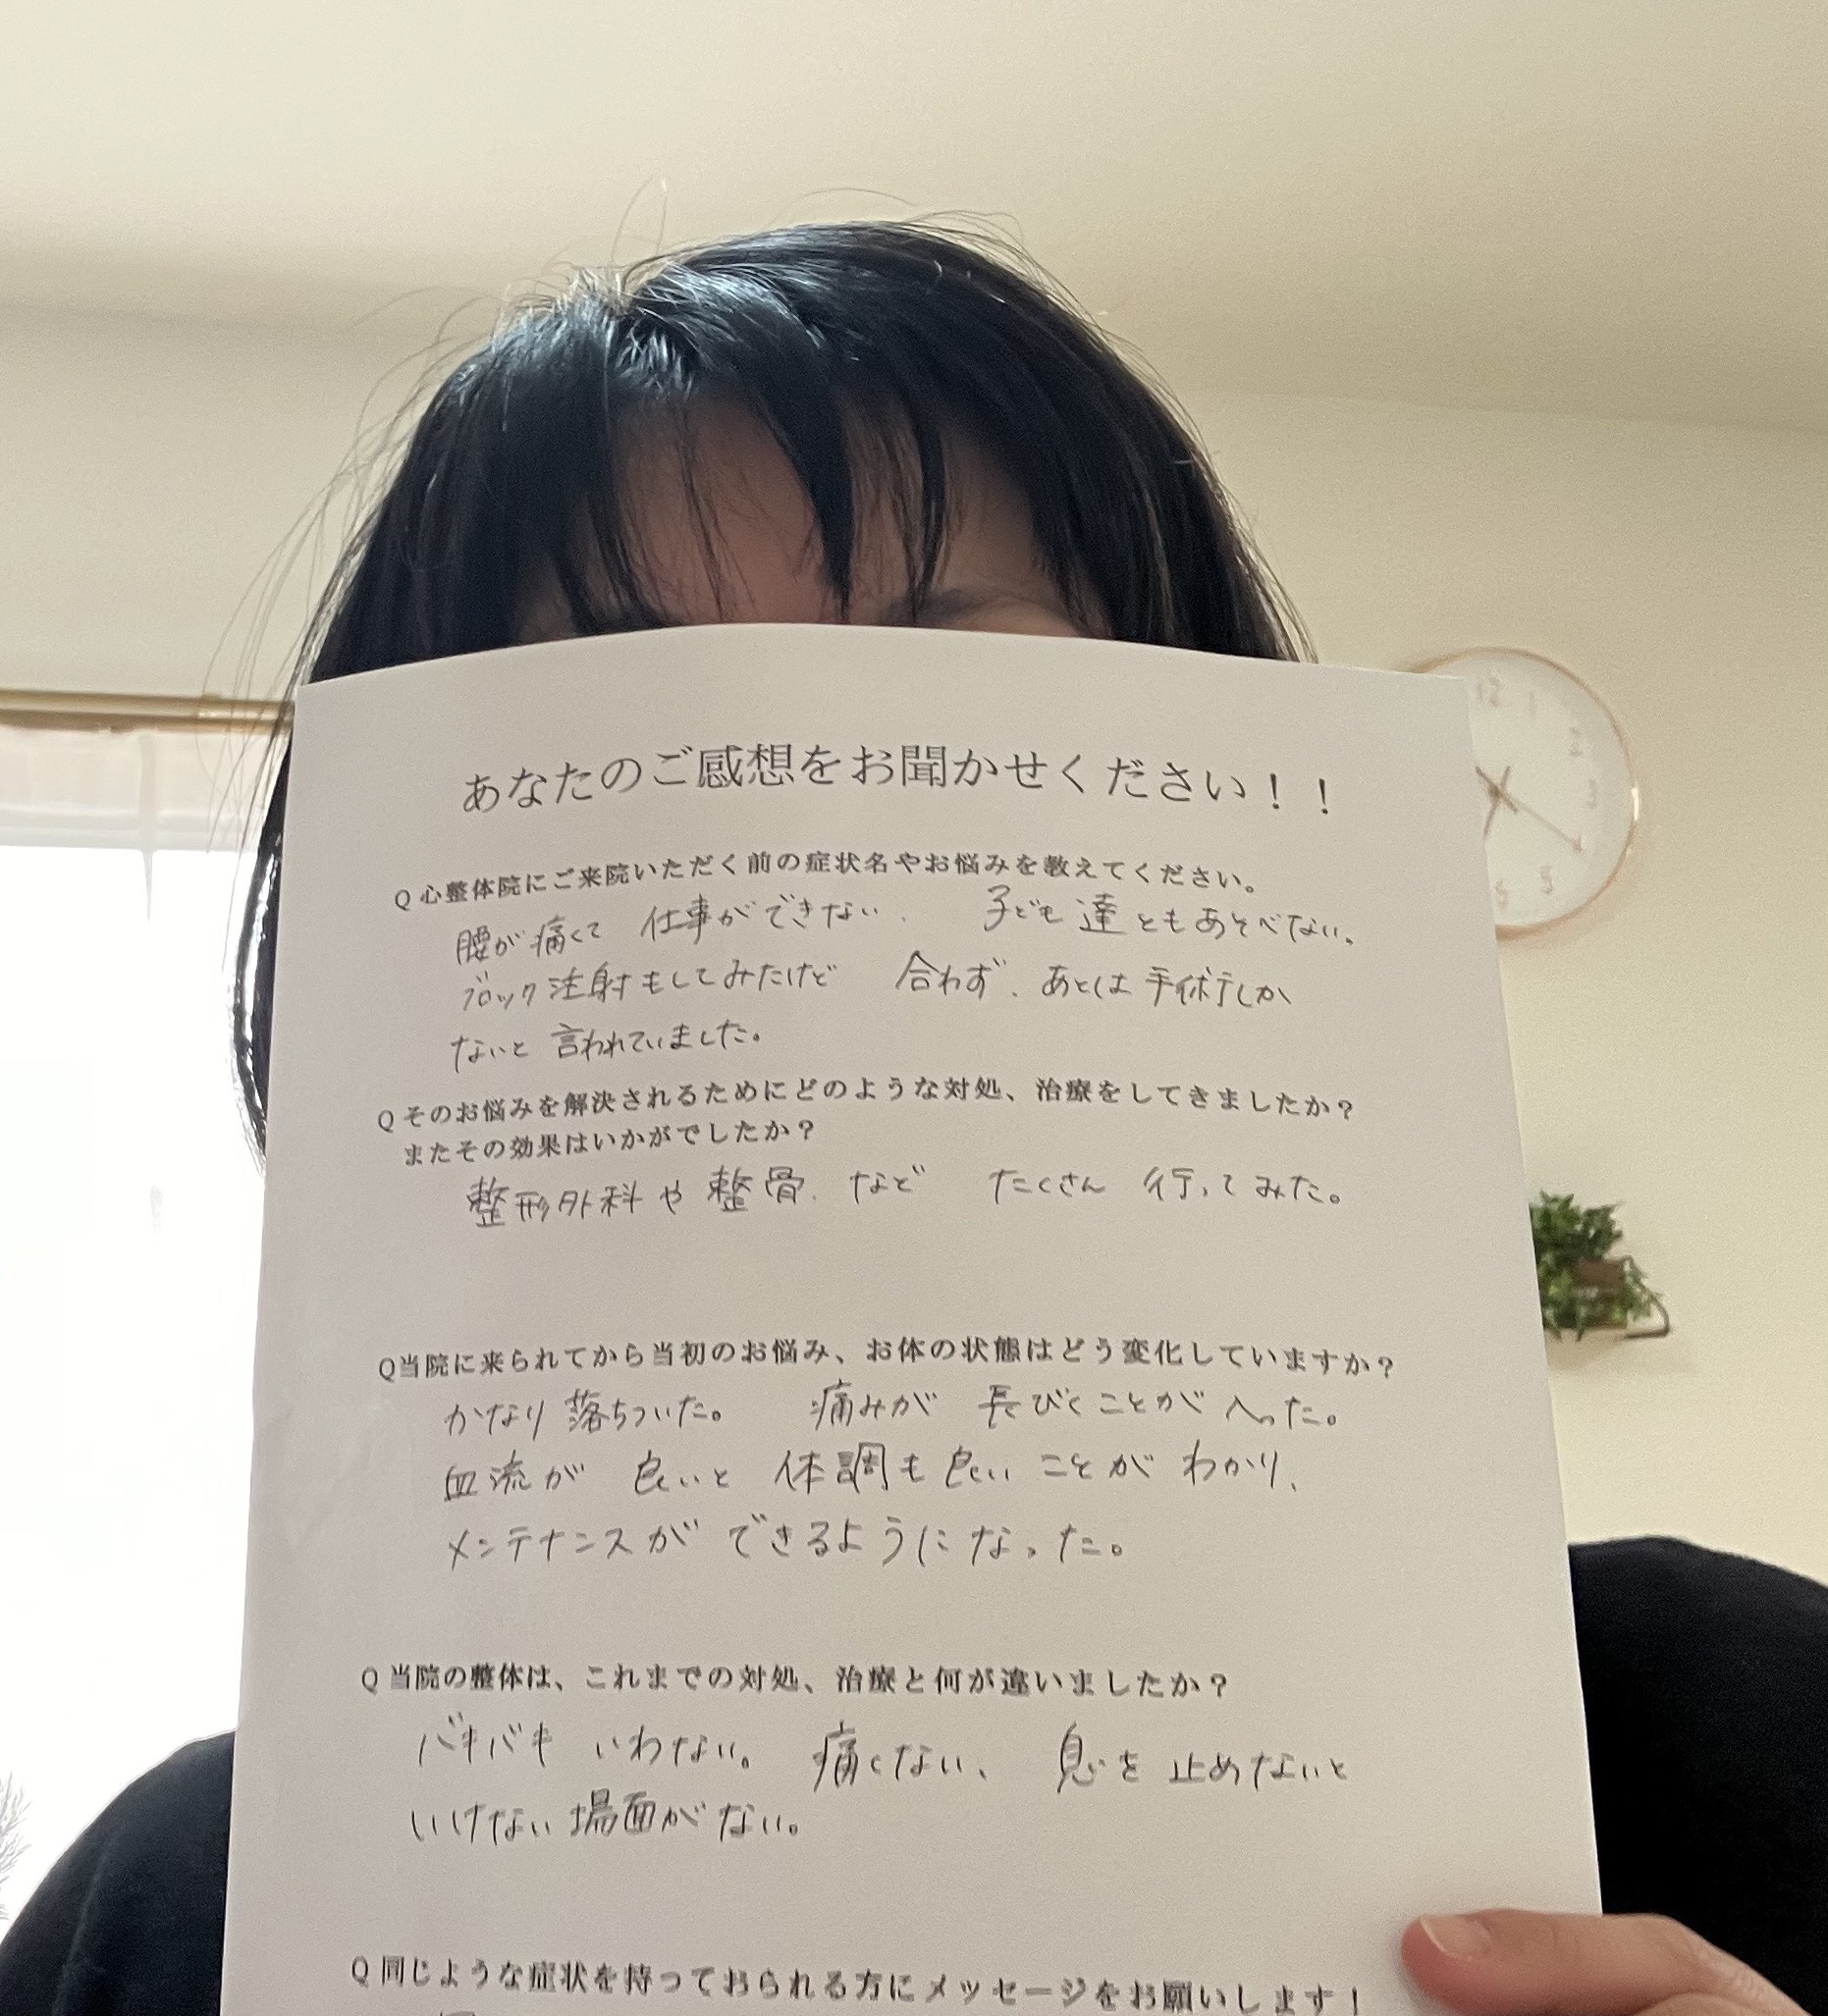 あなたのご感想をお聞かせください！！
Q 心整体院にご来院いただく前の症状名やお悩みを教えてください。
腰が痛くて 仕事ができない、 子ども達ともあそべない。
ブロック注射もしてみたけど 合わず、あとは手術しか
ないと 言われていました。
Q そのお悩みを解決されるためにどのような対処、治療をしてきましたか？
またその効果はいかがでしたか？
整形外科や整骨、など たくさん 行ってみた。
Q当院に来られてから当初のお悩み、お体の状態はどう変化していますか？
かなり落ちついた。 痛みが 長びくことが へった。
血流が 良いと 体調も良いことが わかり、
メンテナンスが できるようになった。
Q 当院の整体は、これまでの対処、治療と何が違いましたか？
バキバキ いわない。 痛くない、 息を 止めないと
いけない場面がない。
Q 同じような症状を持っておられる方にメッセージをお願いします！
12
1
2
3
5
6